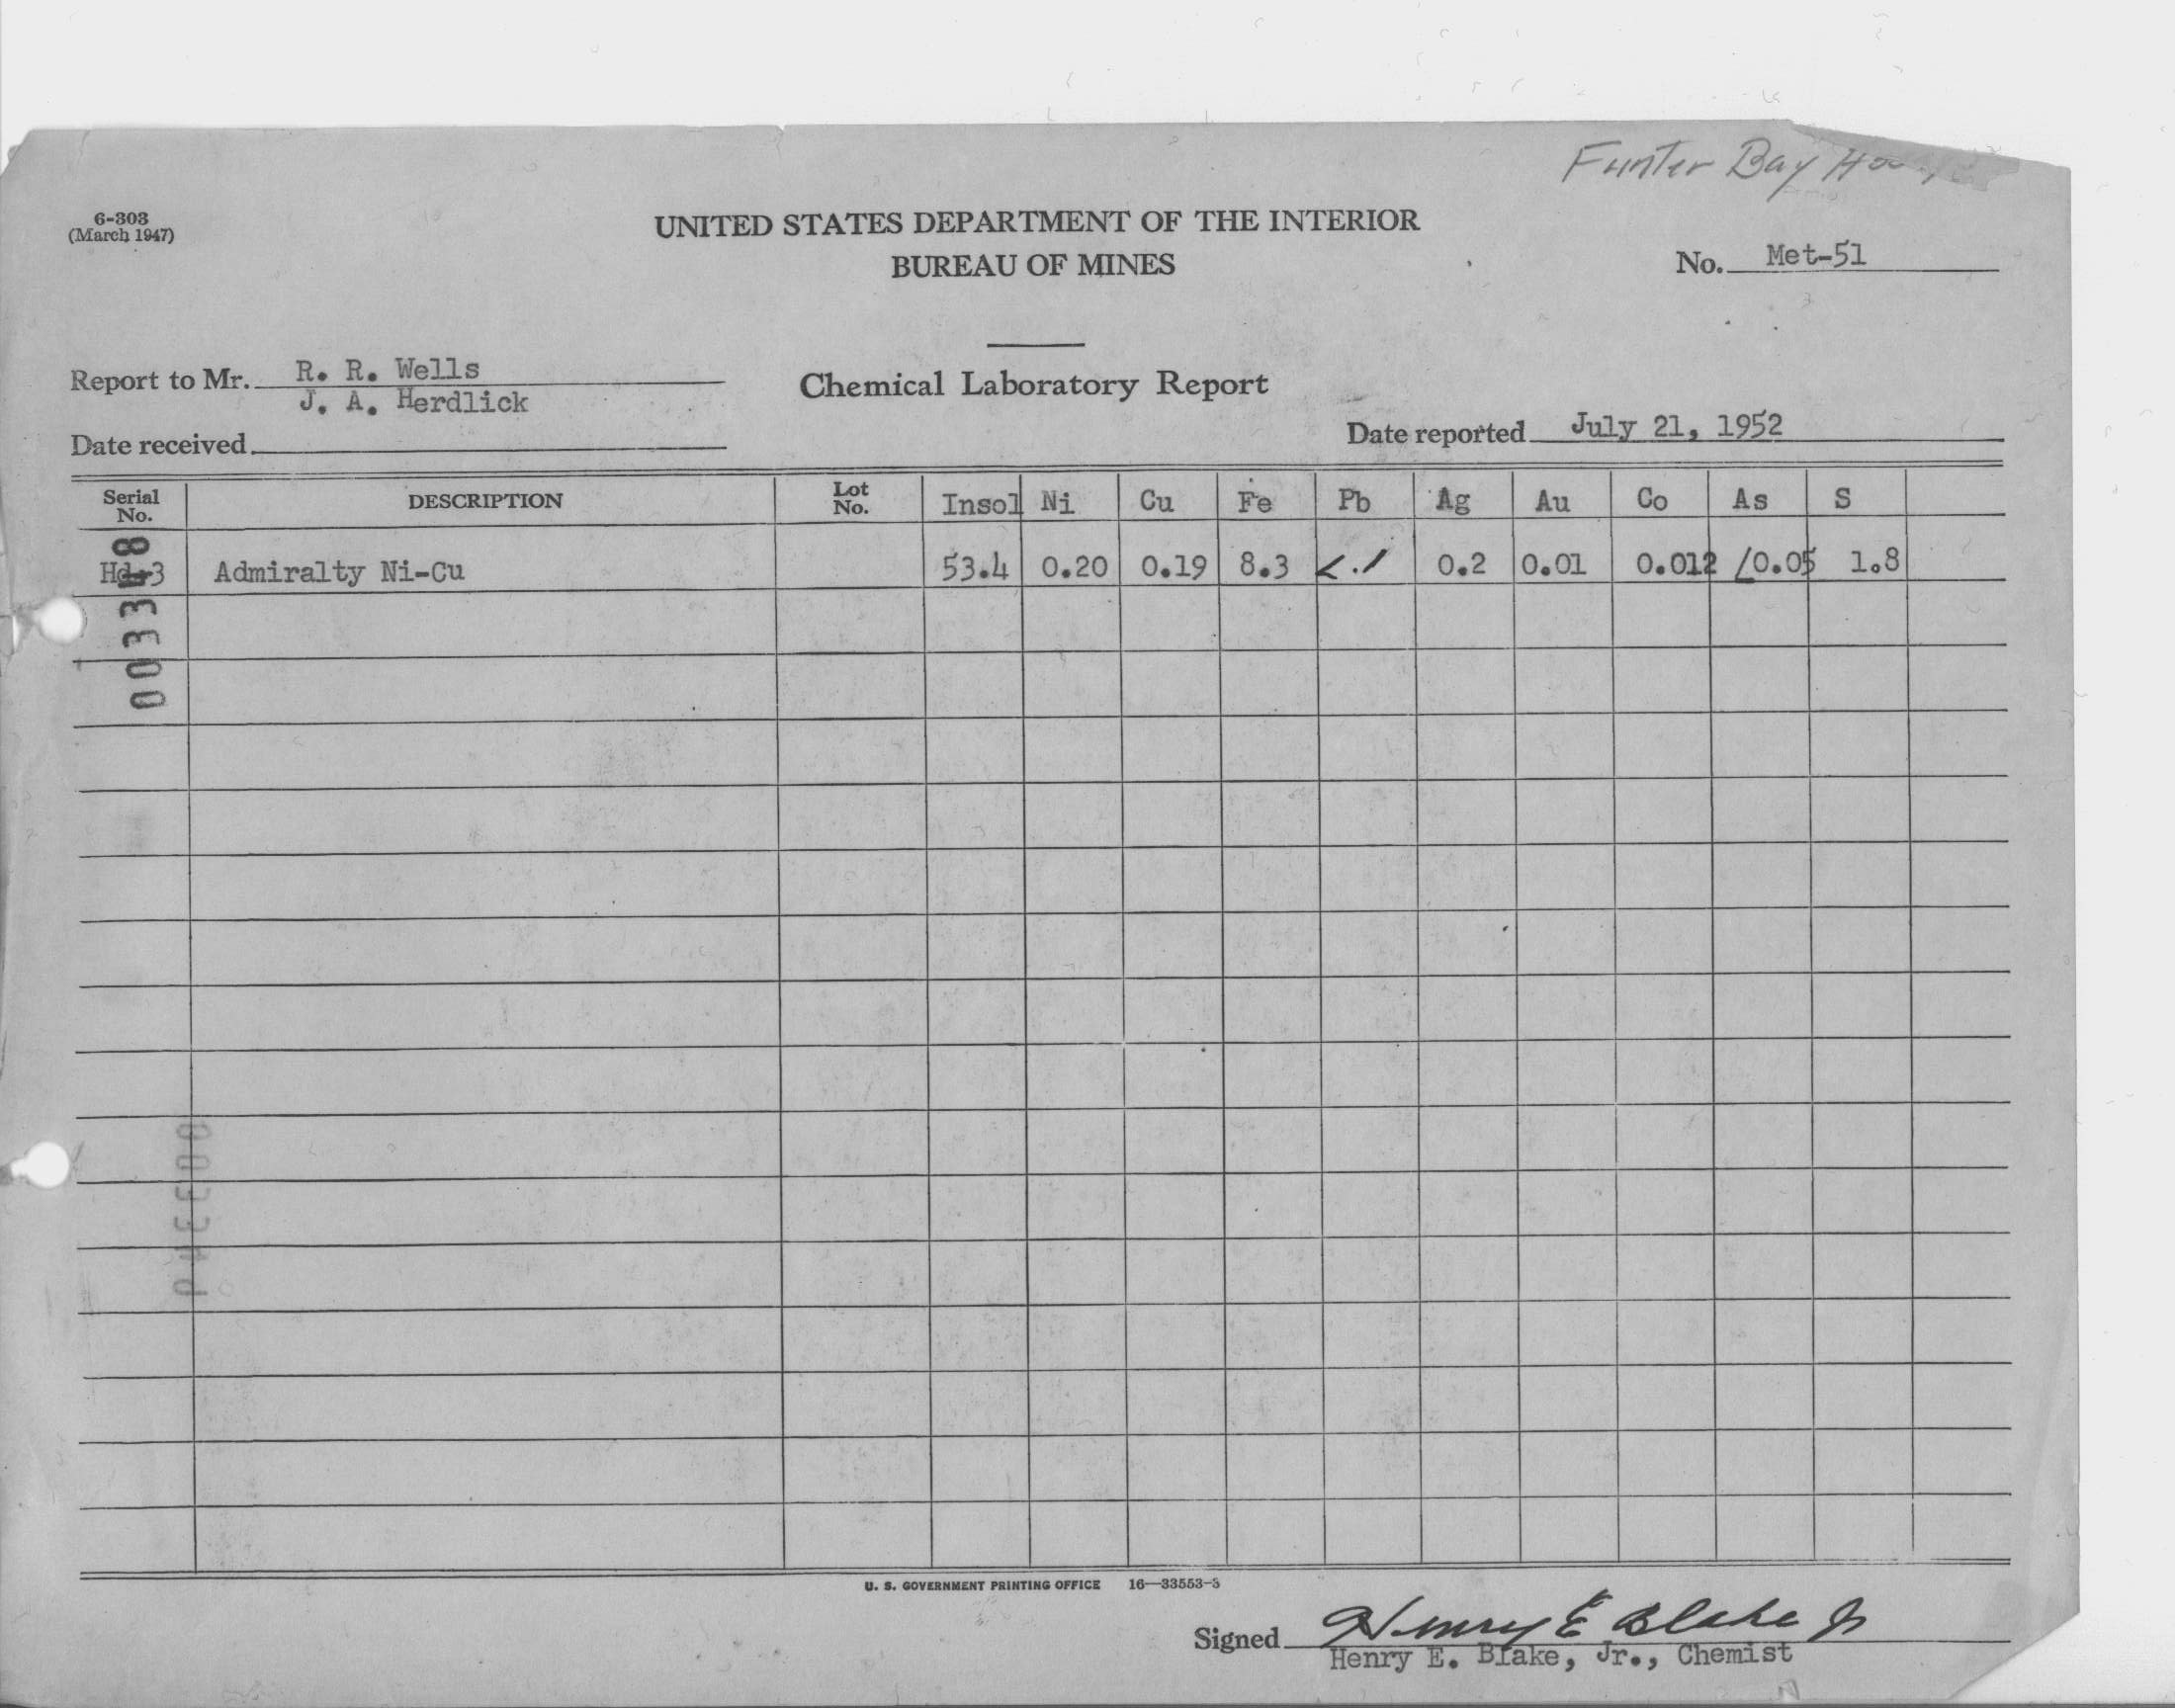 Funter Bay
6-303
(March 1947)
UNITED STATES DEPARTMENT OF THE INTERIOR
BUREAU OF MINES
No. Met-51
Report to Mr. R. R. Wells
J. A. Herdlick
Chemical Laboratory Report
Date received
Date reported July 21, 1952
Serial No. DESCRIPTION Lot No. Insol Ni Cu Fe Pb Ag Au Co As S
Hd-3 Admiralty Ni-Cu 53.4 0.20 0.19 8.3 <.1 0.2 0.01 0.012 /0.05 1.8
U. S. GOVERNMENT PRINTING OFFICE 16—33553-3
Signed Henry E Blake Jr
Henry E. Blake, Jr., Chemist